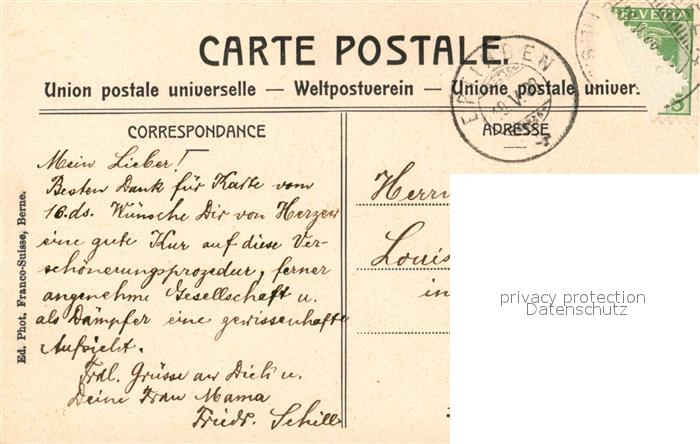 HELVETIA
5
CARTE POSTALE.
Union postale universelle — Weltpostverein — Unione postale univer
19.V.
CORRESPONDANCE
ADRESSE
Mein Lieber!
Besten Dank für Karte vom
16. ds. Wünsche Dir von Herzen
eine gute Kur auf diese Ver-
schönerungsprozedur, ferner
angenehme Gesellschaft u.
als Dämpfer eine gewissenhafte
Aufsicht.
Frdl. Grüsse an Dich u.
Deine Frau Mama
Friedr. Schill
Herrn
Louis
in
Ed. Phot. Franco-Suisse, Berne.
privacy protection
Datenschutz